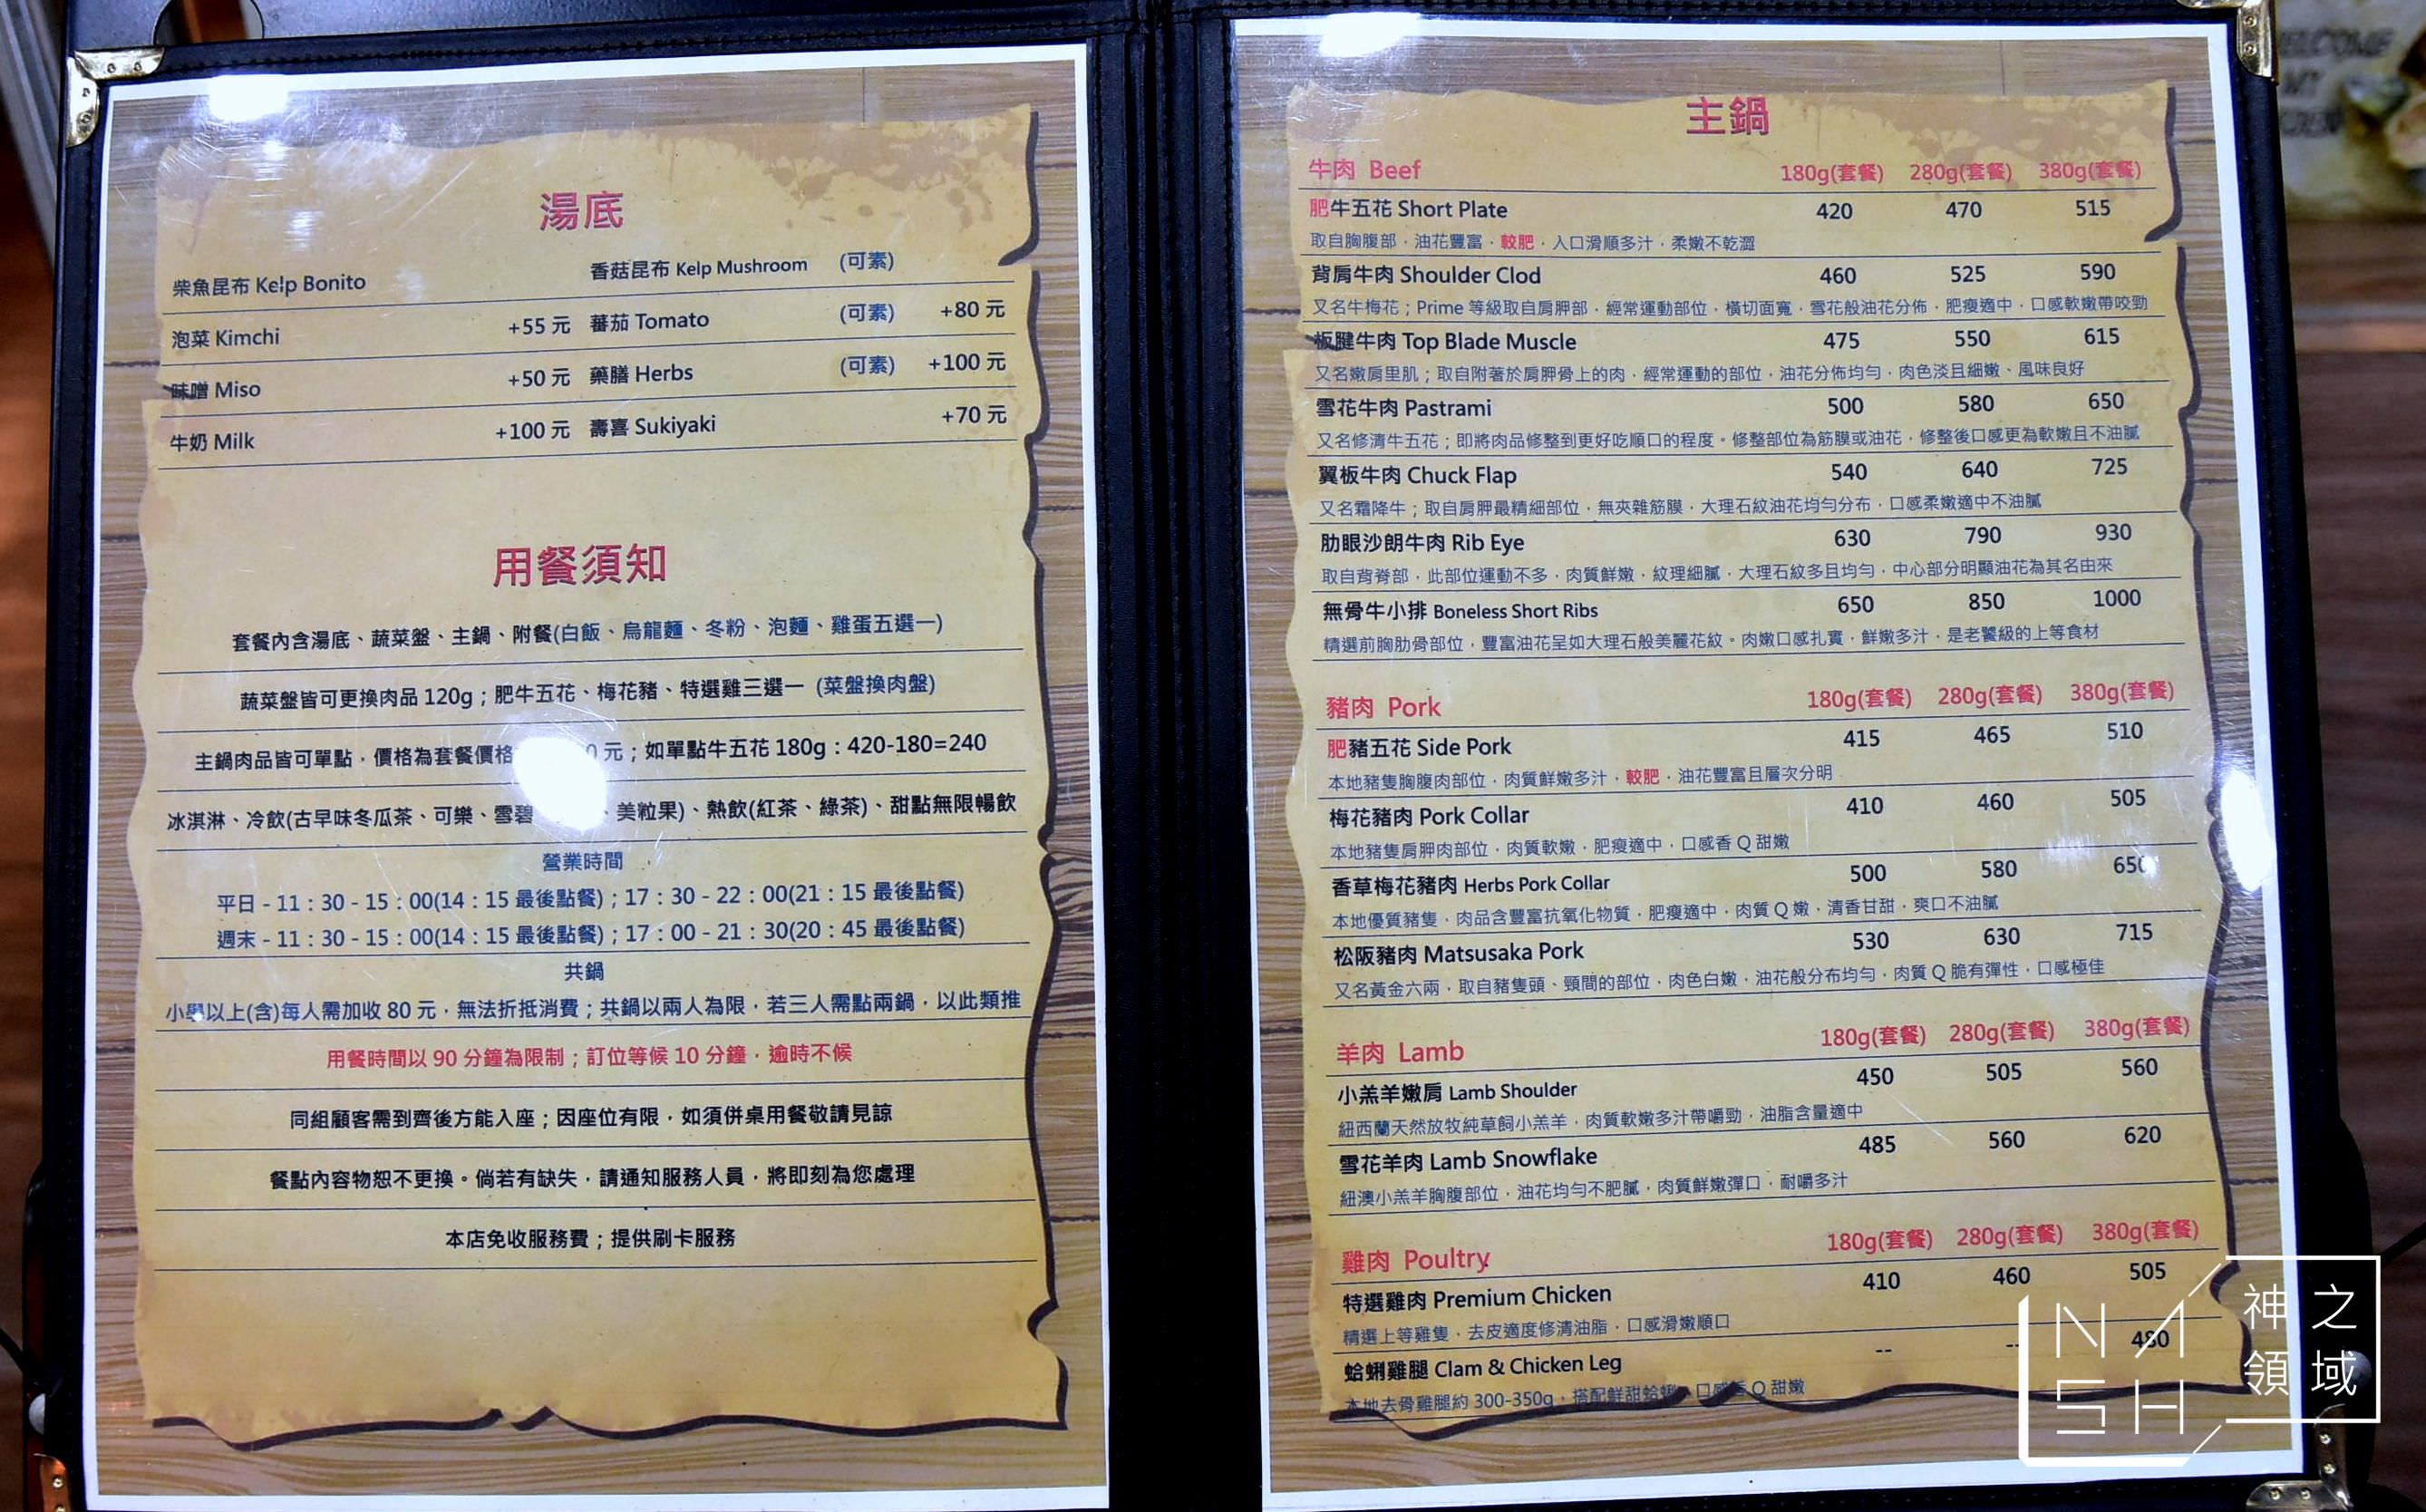 湯底
柴魚昆布 Kelp Bonito 香菇昆布 Kelp Mushroom (可素)
泡菜 Kimchi +55 元 蕃茄 Tomato (可素) +80 元
味噌 Miso +50 元 藥膳 Herbs (可素) +100 元
牛奶 Milk +100 元 壽喜 Sukiyaki +70 元
用餐須知
套餐內含湯底、蔬菜盤、主鍋、附餐(白飯、烏龍麵、冬粉、泡麵、雞蛋五選一)
蔬菜盤皆可更換肉品 120g；肥牛五花、梅花豬、特選雞三選一 (菜盤換肉盤)
主鍋肉品皆可單點，價格為套餐價格 元；如單點牛五花 180g：420-180=240
冰淇淋、冷飲(古早味冬瓜茶、可樂、雪碧 、美粒果)、熱飲(紅茶、綠茶)、甜點無限暢飲
營業時間
平日 - 11：30 - 15：00(14：15 最後點餐)；17：30 - 22：00(21：15 最後點餐)
週末 - 11：30 - 15：00(14：15 最後點餐)；17：00 - 21：30(20：45 最後點餐)
共鍋
小學以上(含)每人需加收 80 元，無法折抵消費；共鍋以兩人為限，若三人需點兩鍋，以此類推
用餐時間以 90 分鐘為限制；訂位等候 10 分鐘，逾時不候
同組顧客需到齊後方能入座；因座位有限，如須併桌用餐敬請見諒
餐點內容物恕不更換。倘若有缺失，請通知服務人員，將即刻為您處理
本店免收服務費；提供刷卡服務
主鍋
牛肉 Beef 180g(套餐) 280g(套餐) 380g(套餐)
肥牛五花 Short Plate 420 470 515
取自胸腹部，油花豐富，較肥，入口滑順多汁，柔嫩不乾澀
背肩牛肉 Shoulder Clod 460 525 590
又名牛梅花；Prime 等級取自肩胛部，經常運動部位，橫切面寬，雪花般油花分佈，肥瘦適中，口感軟嫩帶咬勁
板腱牛肉 Top Blade Muscle 475 550 615
又名嫩肩里肌；取自附著於肩胛骨上的肉，經常運動的部位，油花分佈均勻，肉色淡且細嫩、風味良好
雪花牛肉 Pastrami 500 580 650
又名修清牛五花；即將肉品修整到更好吃順口的程度。修整部位為筋膜或油花，修整後口感更為軟嫩且不油膩
翼板牛肉 Chuck Flap 540 640 725
又名霜降牛；取自肩胛最精細部位，無夾雜筋膜，大理石紋油花均勻分布，口感柔嫩適中不油膩
肋眼沙朗牛肉 Rib Eye 630 790 930
取自背脊部，此部位運動不多，肉質鮮嫩，紋理細膩，大理石紋多且均勻，中心部分明顯油花為其名由來
無骨牛小排 Boneless Short Ribs 650 850 1000
精選前胸肋骨部位，豐富油花呈如大理石般美麗花紋。肉嫩口感扎實，鮮嫩多汁，是老饕級的上等食材
豬肉 Pork 180g(套餐) 280g(套餐) 380g(套餐)
肥豬五花 Side Pork 415 465 510
本地豬隻胸腹肉部位，肉質鮮嫩多汁，較肥，油花豐富且層次分明
梅花豬肉 Pork Collar 410 460 505
本地豬隻肩胛肉部位，肉質軟嫩，肥瘦適中，口感香 Q 甜嫩
香草梅花豬肉 Herbs Pork Collar 500 580 650
本地優質豬隻，肉品含豐富抗氧化物質，肥瘦適中，肉質 Q 嫩，清香甘甜，爽口不油膩
松阪豬肉 Matsusaka Pork 530 630 715
又名黃金六兩，取自豬隻頭、頸間的部位，肉色白嫩，油花般分布均勻，肉質 Q 脆有彈性，口感極佳
羊肉 Lamb 180g(套餐) 280g(套餐) 380g(套餐)
小羔羊嫩肩 Lamb Shoulder 450 505 560
紐西蘭天然放牧純草飼小羔羊，肉質軟嫩多汁帶嚼勁，油脂含量適中
雪花羊肉 Lamb Snowflake 485 560 620
紐澳小羔羊胸腹部位，油花均勻不肥膩，肉質鮮嫩彈口，耐嚼多汁
雞肉 Poultry 180g(套餐) 280g(套餐) 380g(套餐)
特選雞肉 Premium Chicken 410 460 505
精選上等雞隻，去皮適度修清油脂，口感滑嫩順口
蛤蜊雞腿 Clam & Chicken Leg -- -- 480
本地去骨雞腿約 300-350g，搭配鮮甜蛤蜊，口感香 Q 甜嫩
NASH
神之領域